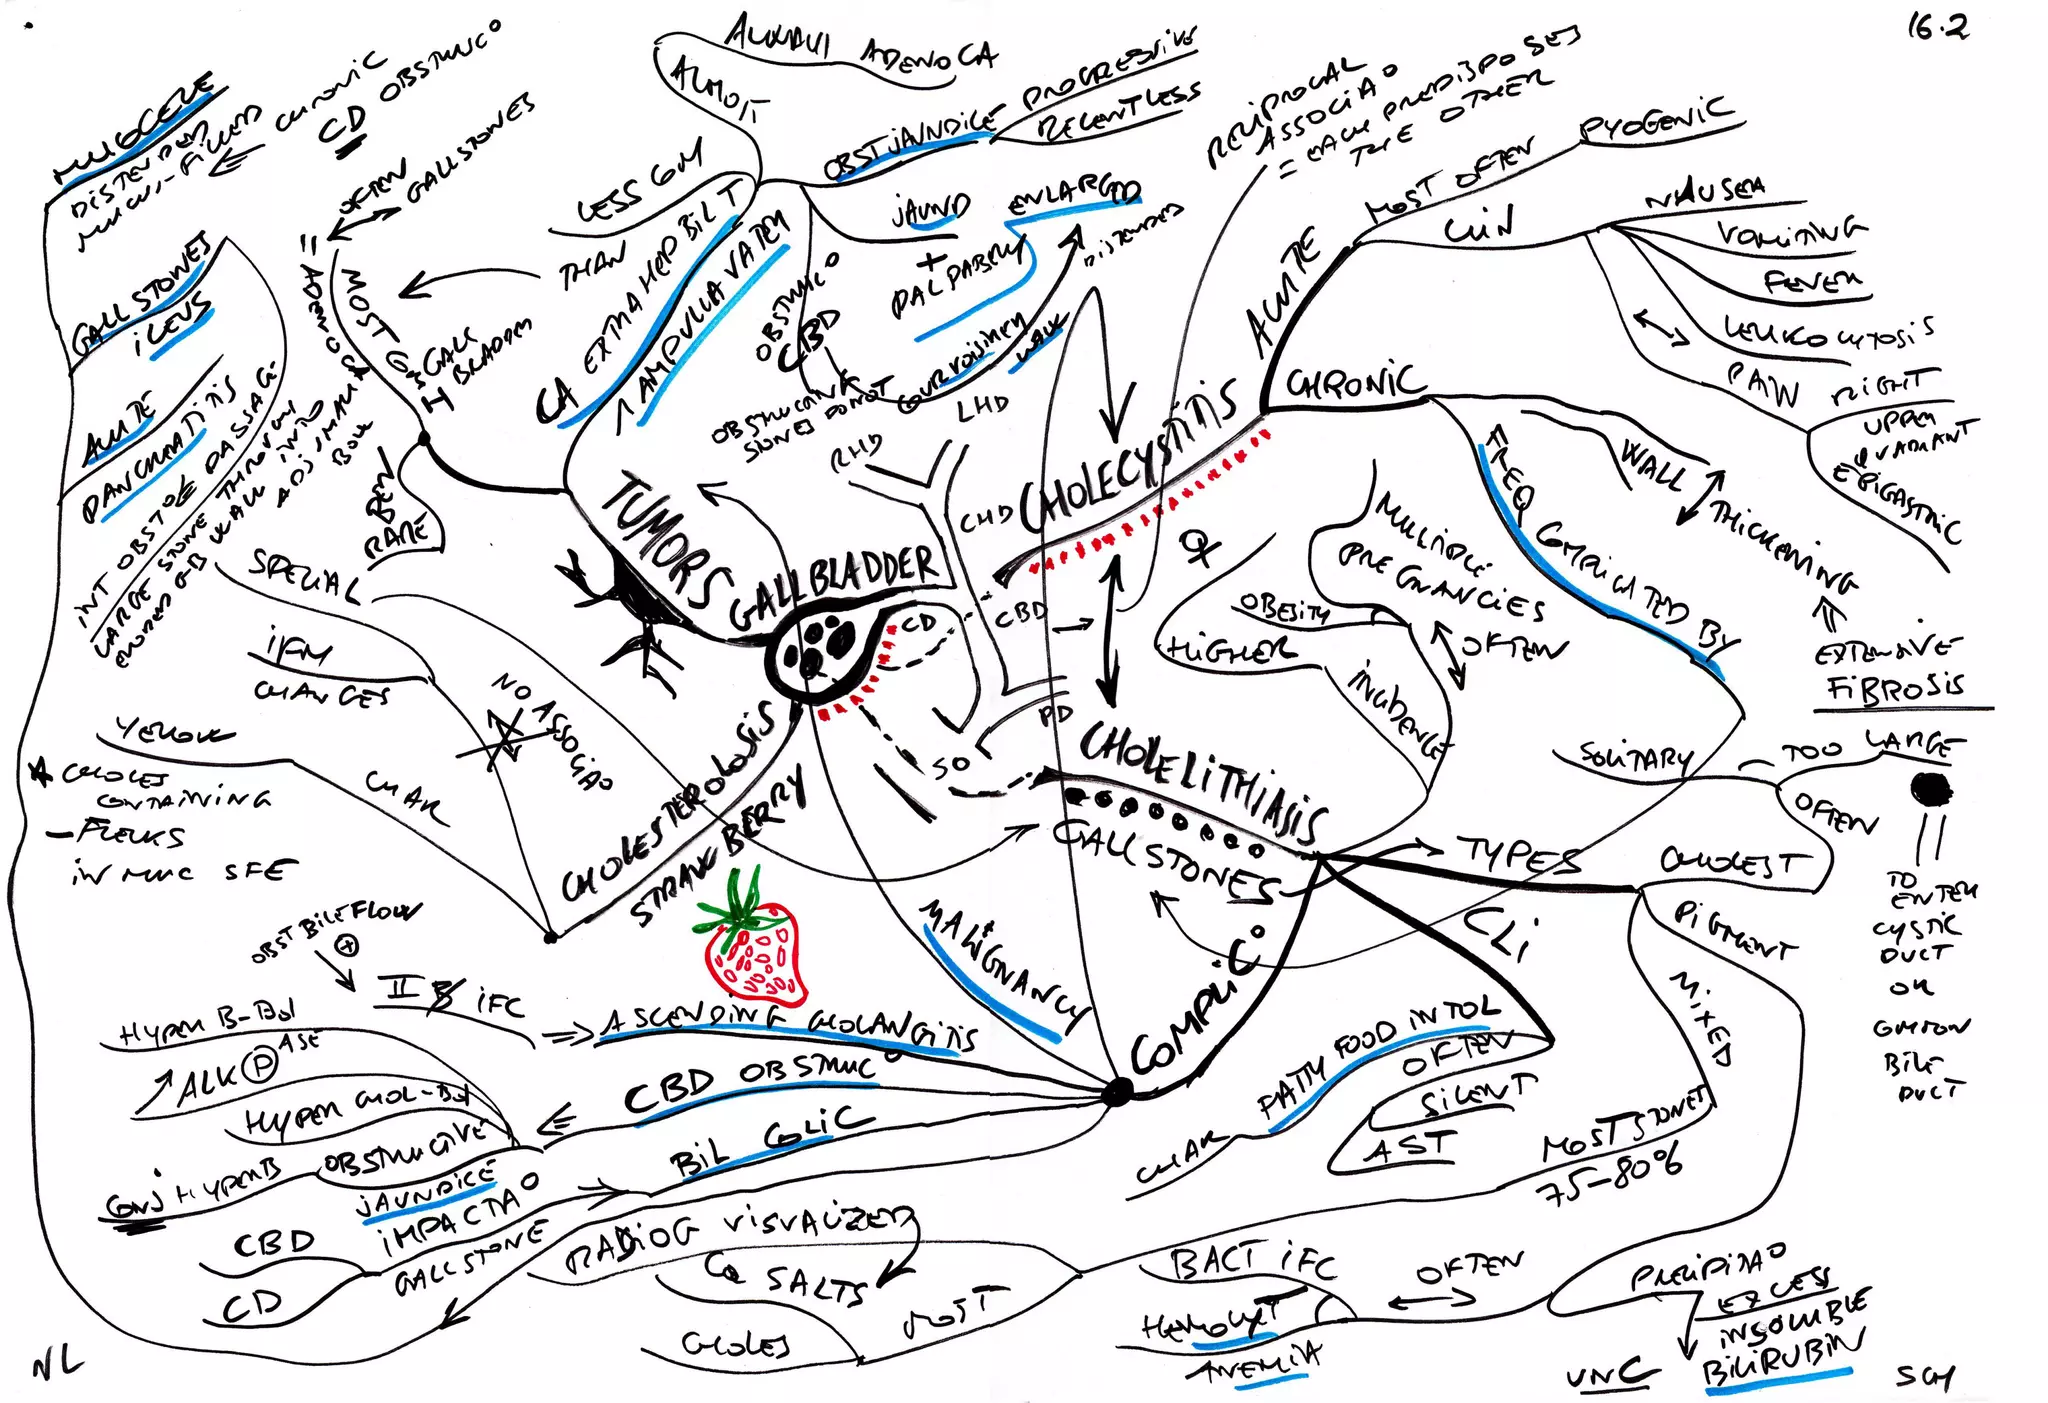 16.2
MUCOCELE
DISTENDED
MUCUS-FILLED
CHRONIC
CD OBSTRUC°
OFTEN
GALLSTONES
GALLSTONES
iLEUS
ACUTE
PANCREATITIS
INT OBST
PASSAGE
LARGE STONE THROUGH
ERODED GB WALL INTO
ADJ SMALL
BOW
= ADENOCA
MOST COM
GALL
BLADDER
BEN
RARE
ALWAYS ADENOCA
ALMOST
LESS COM
THAN
CA EXTRAHEP BIL T
AMPULLA VATERI
OBST JAUNDICE
PROGRESSIVE
RELENTLESS
JAUND
+
PALPABLY
ENLARGED
DISTENDED
OBSTRUC°
CBD
OBSTRUCTING
STONES DO NOT
COURVOISIER
LAW
TUMORS
GALLBLADDER
RHD
LHD
CHD
CD
CBD
PD
SO
RECIPROCAL
ASSOCIA°
= EACH PREDISPOSES
THE OTHER
CHOLECYSTITIS
ACUTE
MOST OFTEN
PYOGENIC
CLIN
NAUSEA
VOMITING
FEVER
LEUKOCYTOSIS
PAIN
RIGHT
UPPER
QUADRANT
EPIGASTRIC
CHRONIC
WALL
THICKENING
EXTENSIVE
FIBROSIS
FREQ COMPLICATED BY
♀
MULTIPLE
PREGNANCIES
OBESITY
OFTEN
HIGHER
INCIDENCE
CHOLELITHIASIS
GALLSTONES
TYPES
CHOLEST
SOLITARY
OFTEN
TOO LARGE
TO
ENTER
CYSTIC
DUCT
OR
COMMON
BILE
DUCT
PIGMENT
MIXED
MOST STONES
75-80%
CLI
OFTEN
SILENT
AST
FATTY FOOD INTOL
CHAR
COMPLIC°
MALIGNANCY
ASCENDING CHOLANGITIS
II B IFC
OBST BILE FLOW
+
CBD OBSTRUC°
OBSTRUCTIVE
JAUNDICE
HYPER B-BOL
ALK P ASE
HYPER CHOL-BOL
CONJ HYPERB
BIL COLIC
IMPACTAO
GALLSTONE
CBD
CD
CHOLESTEROLOSIS
STRAWBERRY
NO ASSOCIAO
SPECIAL
IFM
CHANGES
YELLOW
CHAR
CHOLES
CONTAINING
- FLECKS
IN MUC SFE
RADIOG VISUALIZED
Ca SALTS
CHOLES
MOST
BACT IFC
HEMOLYT
ANEMIA
OFTEN
PRECIPITAO
EXCESS
INSOLUBLE
BILIRUBIN
UNC
NL
SCH